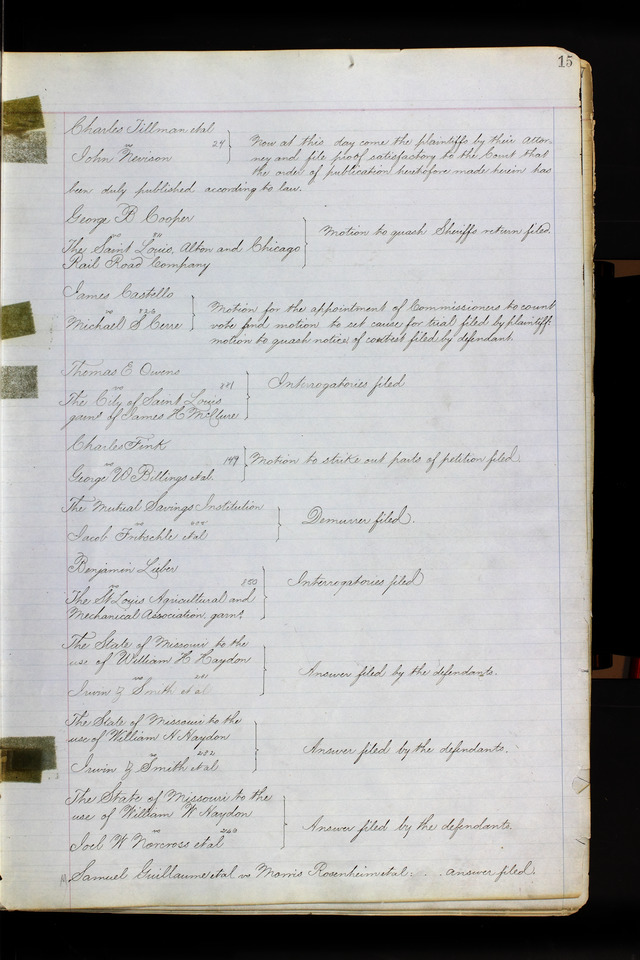 15
Charles Tillman etal
24
John Nevison
Now at this day come the plaintiffs by their attor-
ney and file proof satisfactory to the Court that
the order of publication heretofore made herein has
been duly published according to law.
George B Cooper
vs
The Saint Louis, Alton and Chicago
Rail Road Company
Motion to quash Sheriffs return filed.
James Castello
vs
Michael S Cerre
Motion for the appointment of Commissioners to count
vote and motion to set cause for trial filed by plaintiff:
motion to quash notice of contest filed by defendant.
Thomas E Owens
vs
The City of Saint Louis
garnt of James H McClure
Interrogatories filed
Charles Fink
vs 149
George W Billings etal.
Motion to strike out parts of petition filed
The Mutual Savings Institution
vs
Jacob Fritschle etal
Demurrer filed.
Benjamin Lieber
vs 850
The St Louis Agricultural and
Mechanical Association, garnt.
Interrogatories filed
The State of Missouri to the
use of William H Haydon
vs 281
Irwin Z Smith et al
Answer filed by the defendants.
The State of Missouri to the
use of William H Haydon
vs 282
Irwin Z Smith et al
Answer filed by the defendants.
The State of Missouri to the
use of William W Haydon
vs 260
Joel W Norcross et al
Answer filed by the defendants.
Samuel Guillaume etal vs Morris Rosenheim etal: . . answer filed.